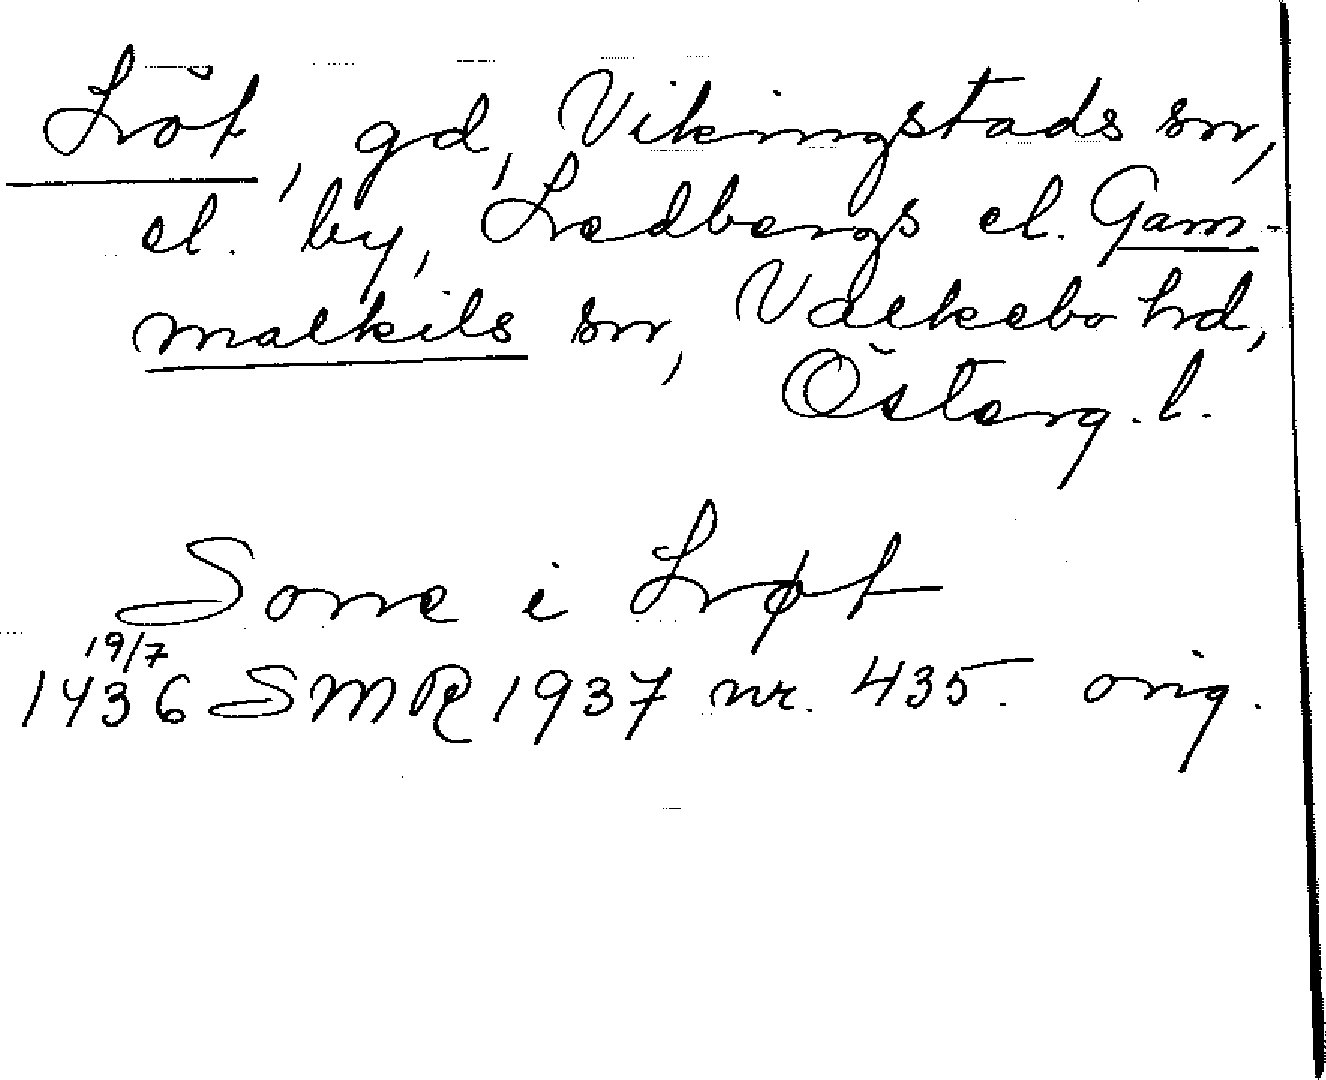 Löt, gd, Vikingstads sn,
el. by, Ledbergs el. Gam-
malkils sn, Valkebo hd,
Österg. l.
Sone i Løt
19/7
1436 SMR 1937 nr. 435. orig.